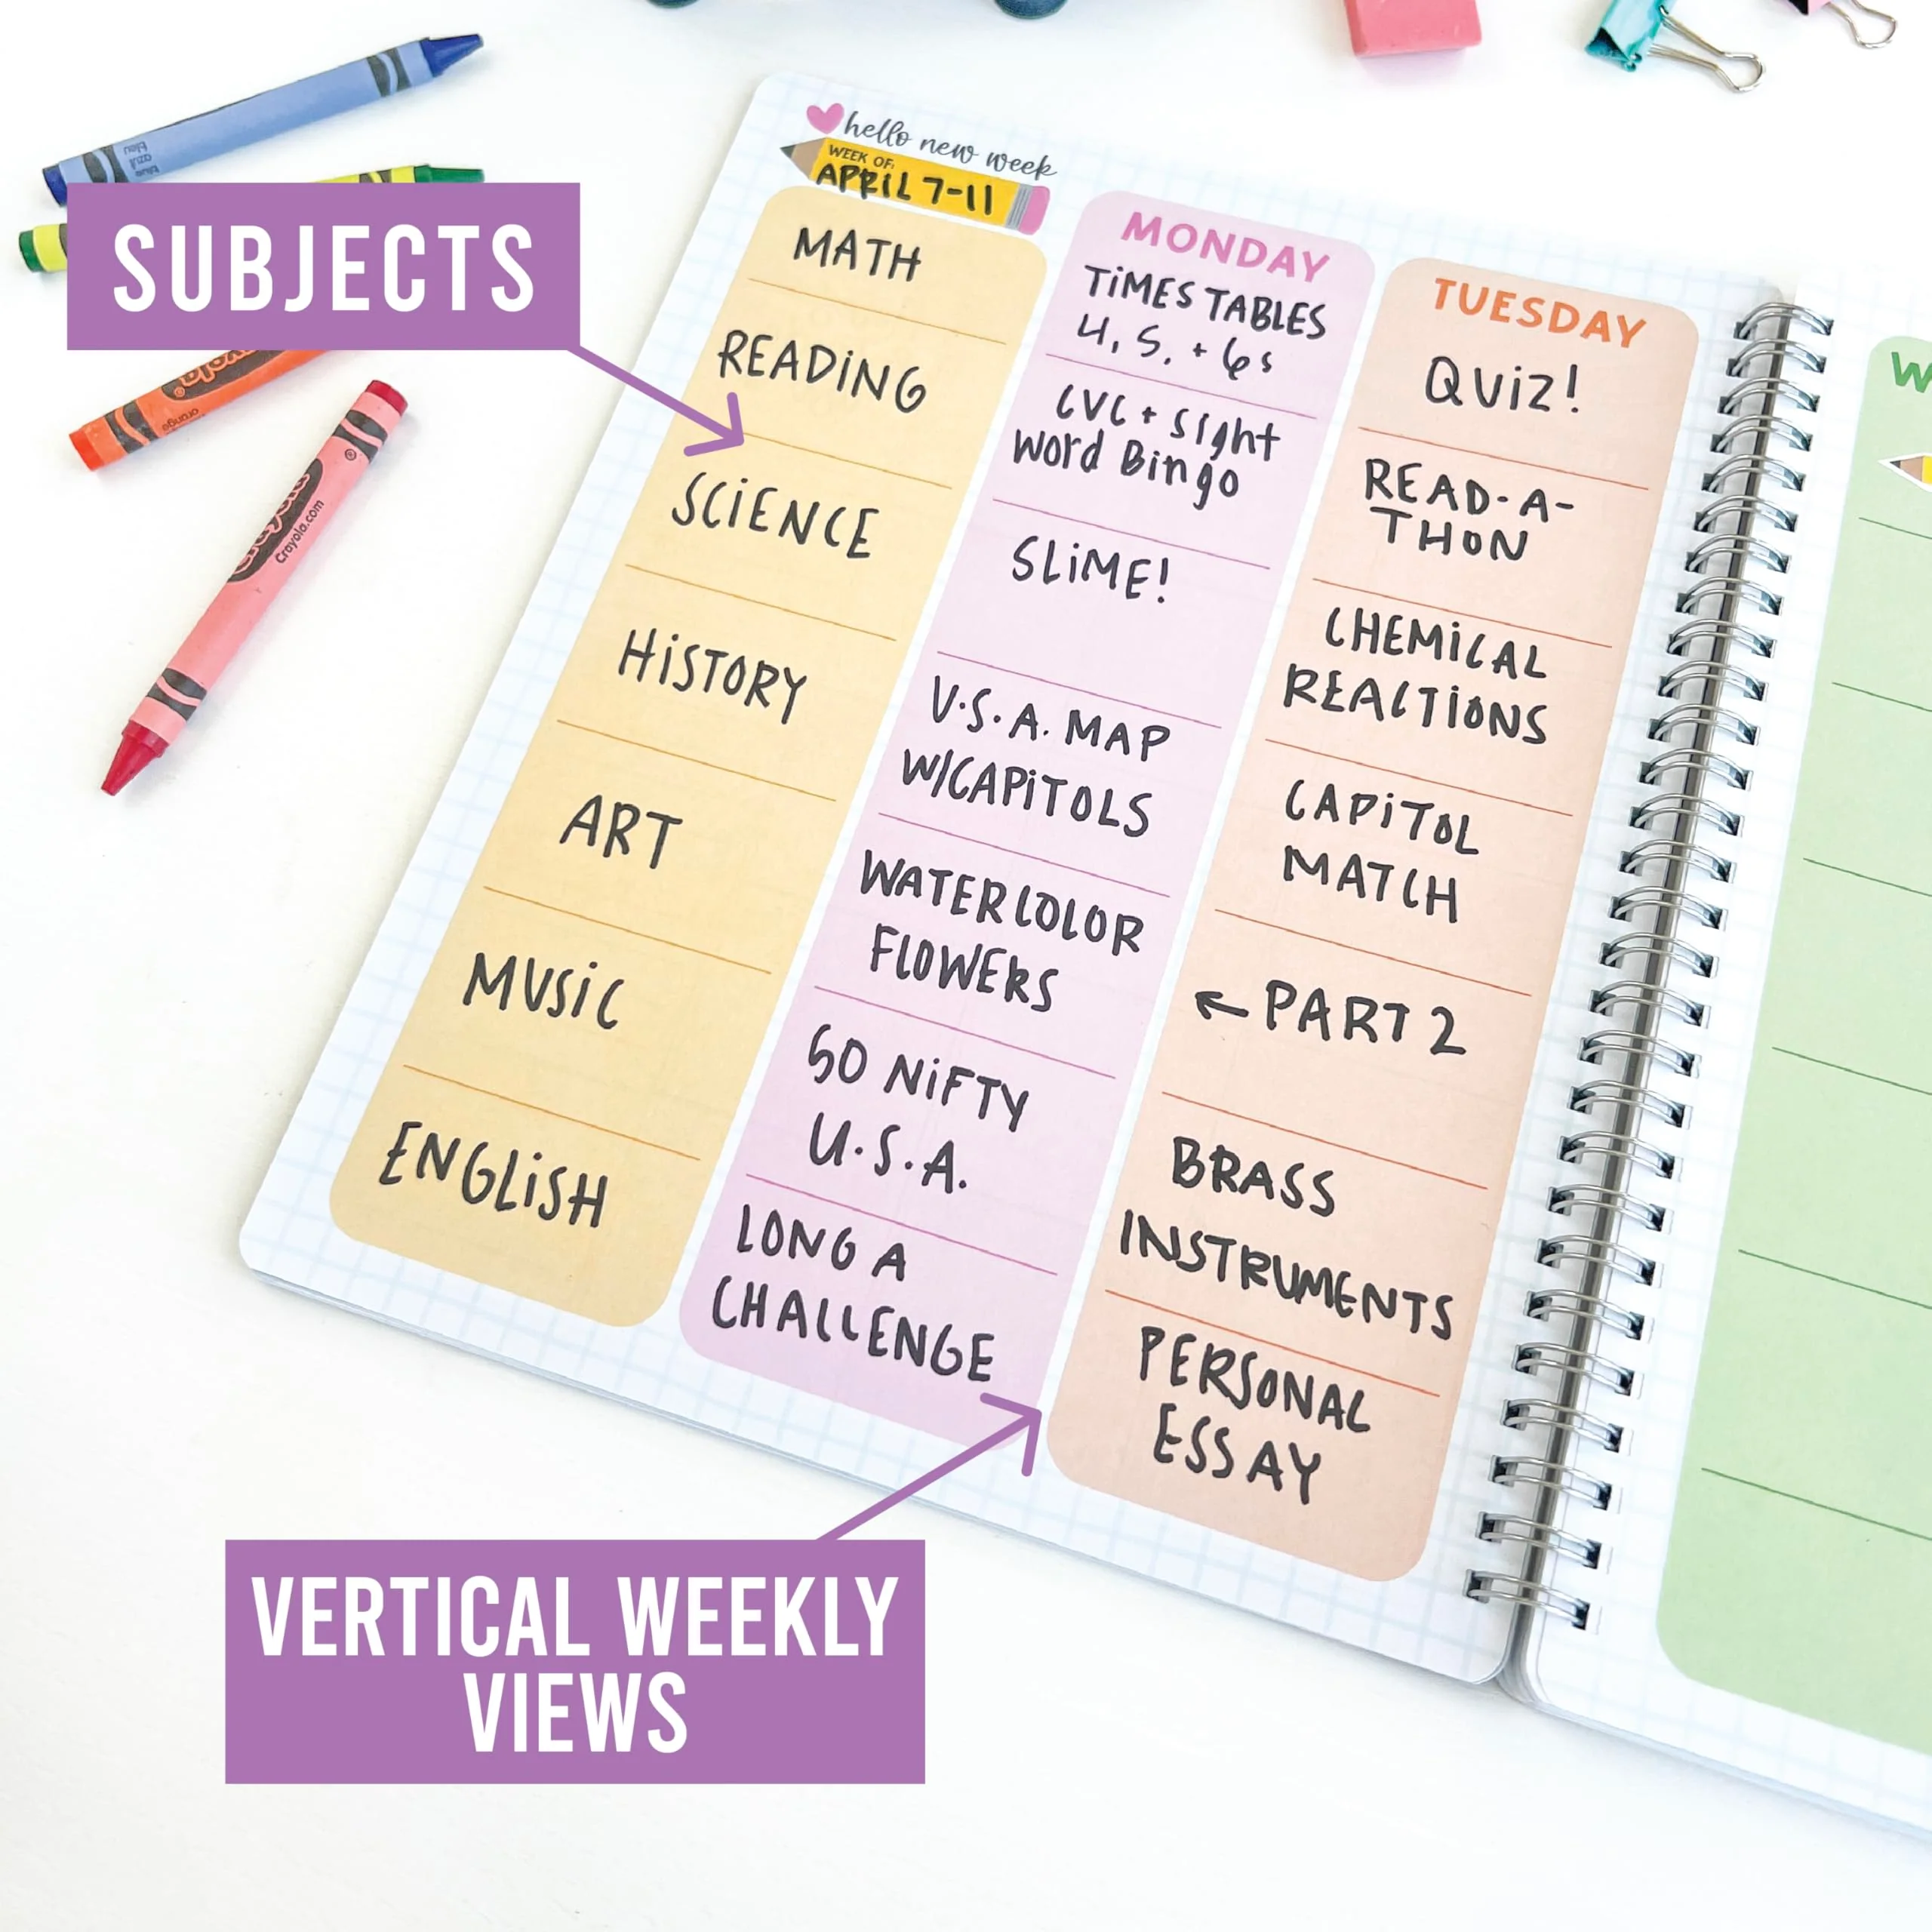 hello new week
WEEK OF:
APRiL 7-11
SUBJECTS
MATH
READiNG
SCiENCE
HiSTORY
ART
MUSiC
ENGLiSH
MONDAY
TiMES TABLES
4, 5, + 6s
CVC + Sight
Word Bingo
SLiME!
U.S.A. MAP
W/CAPiTOLS
WATERCOLOR
FLOWERS
50 NiFTY
U.S.A.
LONG A
CHALLENGE
TUESDAY
QUiZ!
READ-A-
THON
CHEMiCAL
REACTiONS
CAPiTOL
MATCH
← PART 2
BRASS
INSTRUMENTS
PERSONAL
ESSAY
W
VERTICAL WEEKLY
VIEWS
bleu
azul
blue
orange
Crayola
Crayola
®
Crayola.com